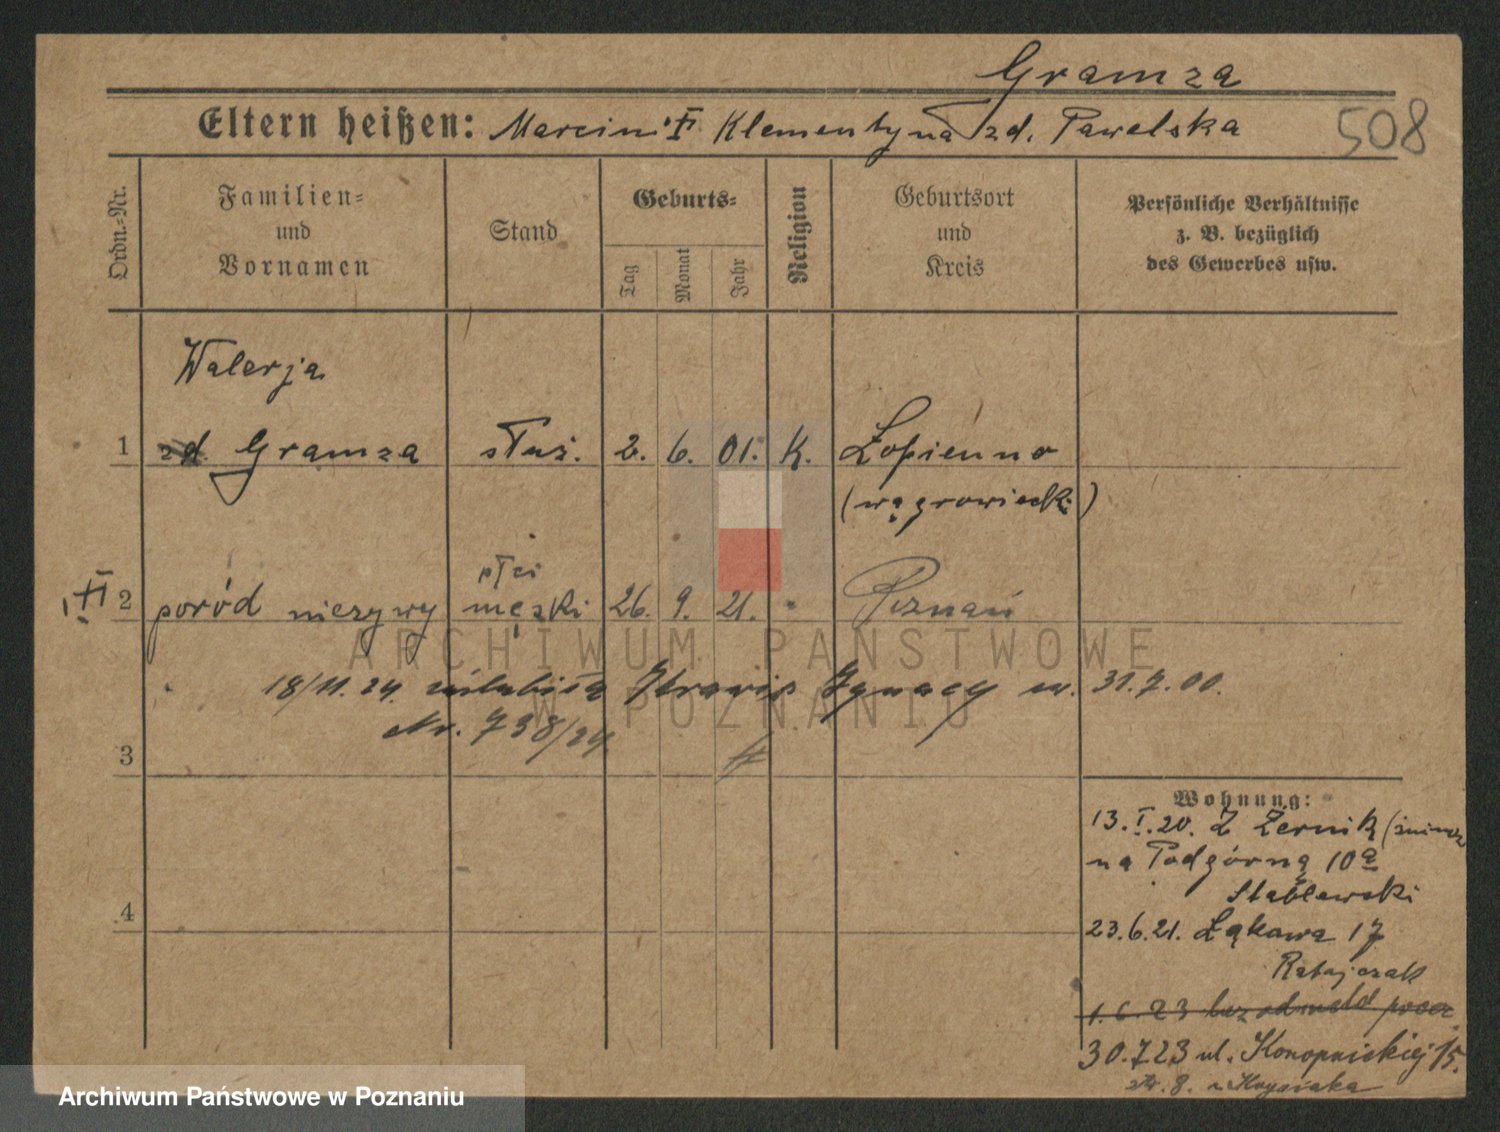 Gramza
Eltern heißen: Marcin i Klementyna zd. Pawelska
508
Ordn.-Nr.
Familien-
und
Vornamen
Stand
Geburts-
Tag
Monat
Jahr
Religion
Geburtsort
und
Kreis
Persönliche Verhältnisse
z. B. bezüglich
des Gewerbes usw.
Walerja
1 zd. Gramza służ. 2. 6. 01. K. Łopienno
(wągrowiecki)
płci
2 poród nieżywy męski 26. 9. 21. " Poznań
ARCHIWUM PAŃSTWOWE
W POZNANIU
18/11. 24. Ignacy ur. 31.7.00.
Nr. 738/24
3
4
Wohnung:
13.I.20. Z Żernik
na Podgórną 10a
Stablewski
23.6.21. Łąkowa 17
Ratajczak
1.6.23 bez odmeld
30.7.23 ul. Konopnickiej 15.
Archiwum Państwowe w Poznaniu